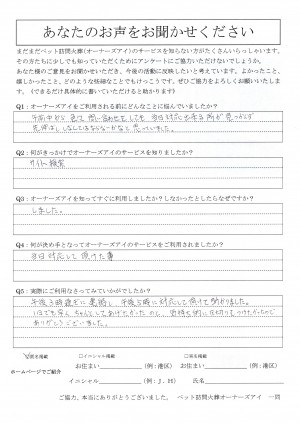 あなたのお声をお聞かせください
まだまだペット訪問火葬(オーナーズアイ)のサービスを知らない方がたくさんいらっしゃいます。
その方たちに少しでも知っていただくためにアンケートにご協力いただけないでしょうか。
あなた様のご意見をお聞かせいただき、今後の活動に反映したいと考えています。よかったこと、
嬉しかったこと、どのような些細なことでもけっこうです。ぜひご協力をよろしくお願いいたしま
す。(できるだけ具体的に書いていただけると助かります)
Q1：オーナーズアイをご利用される前にどんなことに悩んでいましたか？
午前中から 色々 問い合わせをしても 当日対応出来る所が 見つからず
しなくてはならないかなと 思っていました。
Q2：何がきっかけでオーナーズアイのサービスを知りましたか？
サイト検索
Q3：オーナーズアイを知ってすぐに利用しましたか？しなかったとしたらなぜですか？
しました。
Q4：何が決め手となってオーナーズアイのサービスをご利用されましたか？
当日対応して頂けた事
Q5：実際にご利用なさってみていかがでしたか？
午後3時過ぎに連絡し、午後5時に対応して頂けて助かりました。
1日でも早く ちゃんとしてあげたかったのと、気持ち的に区切りをつけたかったので
ありがとうございました。
匿名掲載 □イニシャル掲載 □実名掲載
ホームページでご紹介
お住まい (例:港区) お住まい (例:港区)
イニシャル (例:J.H) 氏名
ご協力、本当にありがとうございました。 ペット訪問火葬オーナーズアイ 一同